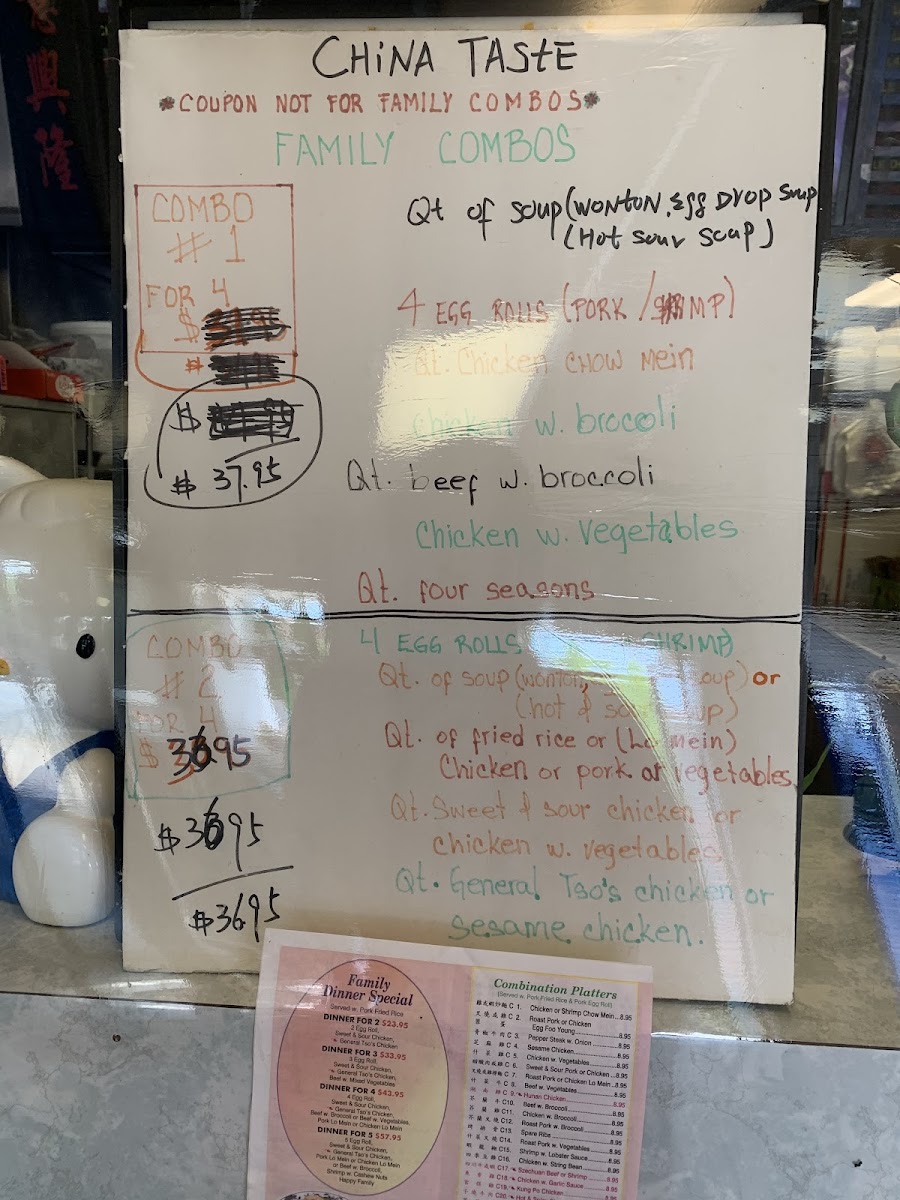 興
隆
CHINA TASTE
*COUPON NOT FOR FAMILY COMBOS*
FAMILY COMBOS
COMBO
# 1
FOR 4
$
$
$
$ 37.95
Qt of soup (WONTON, Egg Drop Soup
(Hot Sour Soup)
4 EGG ROLLS (PORK / SHRIMP)
Qt. Chicken CHOW Mein
Chicken w. broccoli
Qt. beef w. broccoli
Chicken w. Vegetables
Qt. four seasons
COMBO
# 2
FOR 4
$ 3695
$3695
$3695
4 EGG ROLLS SHRIMP
Qt. of soup (wonton, soup) or
(hot & sour soup)
Qt. of fried rice or (Lo mein)
Chicken or pork or vegetables
Qt. Sweet & sour chicken or
chicken w. vegetables
Qt. General Tso's chicken or
sesame chicken.
Family
Dinner Special
Served w. Pork Fried Rice
DINNER FOR 2 $23.95
2 Egg Roll,
Sweet & Sour Chicken,
General Tso's Chicken
DINNER FOR 3 $33.95
3 Egg Roll,
Sweet & Sour Chicken,
General Tso's Chicken,
Beef w. Mixed Vegetables
DINNER FOR 4 $43.95
4 Egg Roll,
Sweet & Sour Chicken,
General Tso's Chicken,
Beef w. Broccoli or Beef w. Vegetables,
Pork Lo Mein or Chicken Lo Mein
DINNER FOR 5 $57.95
5 Egg Roll,
Sweet & Sour Chicken,
General Tso's Chicken,
Pork Lo Mein or Chicken Lo Mein
or Beef w. Broccoli,
Shrimp w. Cashew Nuts
Happy Family
Combination Platters
(Served w. Pork Fried Rice & Pork Egg Roll)
C 1. Chicken or Shrimp Chow Mein...8.95
C 2. Roast Pork or Chicken
Egg Foo Young...8.95
C 3. Pepper Steak w. Onion...8.95
C 4. Sesame Chicken...8.95
C 5. Chicken w. Vegetables...8.95
C 6. Sweet & Sour Pork or Chicken...8.95
C 7. Roast Pork or Chicken Lo Mein...8.95
C 8. Beef w. Vegetables...8.95
C 9. Hunan Chicken...8.95
C10. Beef w. Broccoli...8.95
C11. Chicken w. Broccoli...8.95
C12. Roast Pork w. Broccoli...8.95
C13. Spare Ribs...8.95
C14. Roast Pork w. Vegetables...8.95
C15. Shrimp w. Lobster Sauce...8.95
C16. Chicken w. String Bean...8.95
C17. Szechuan Beef or Shrimp...8.95
C18. Chicken w. Garlic Sauce...8.95
C19. Kung Po Chicken...8.95
C20.